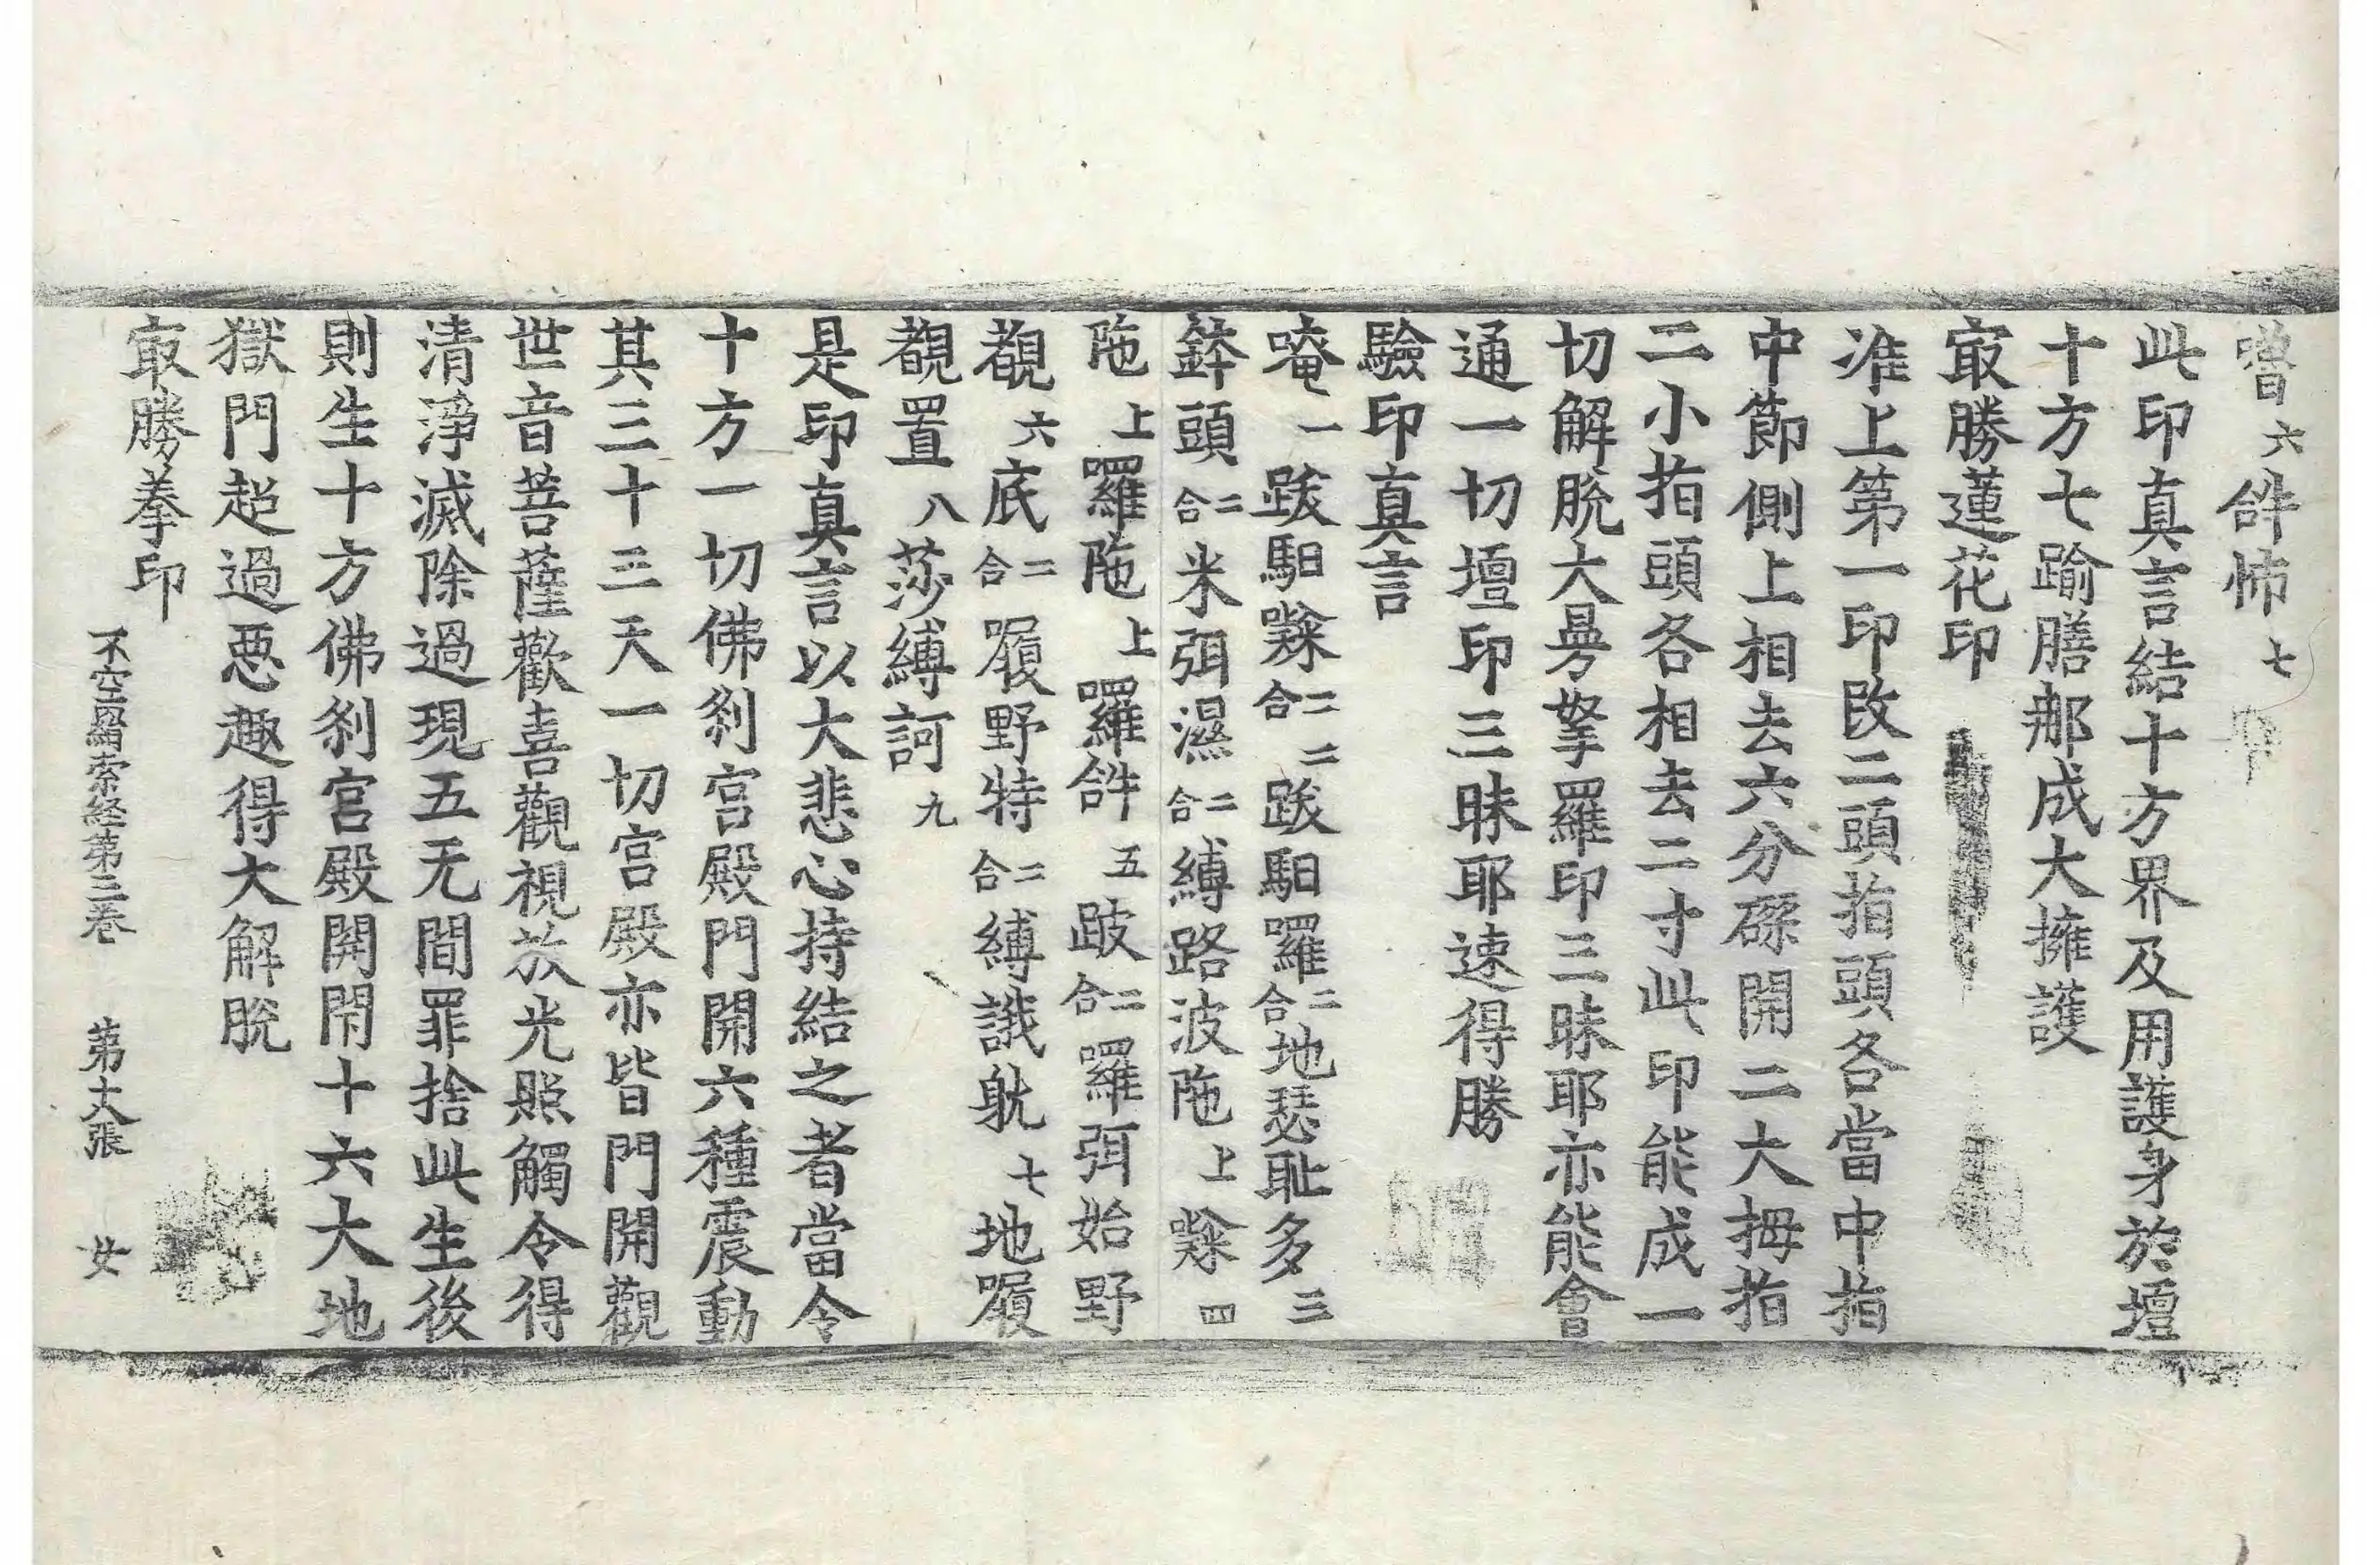 嚼六𤙖怖七
此印真言結十方界及用護身於壇
十方七踰膳那成大擁護
㝡勝蓮花印
准上第一印改二頭指頭各當中指
中節側上相去六分磔開二大拇指
二小指頭各相去二寸此印能成一
切解脫大曼拏羅印三昧耶亦能會
通一切壇印三昧耶速得勝
驗印真言
唵一跋馹㘑二合二跋馹囉二合地瑟耻多三
鉢頭二合米弭濕二合縛路波陁上㘑四
陁上囉陁上囉𤙖五跛二合囉弭始野
覩六底二合𡲼野特二合縛誐躭七地𡲼
覩置八莎縛訶九
是印真言以大悲心持結之者當令
十方一切佛剎宮殿門開六種震動
其三十三天一切宮殿亦皆門開觀
世音菩薩歡喜觀視放光照觸令得
清淨滅除過現五无間罪捨此生後
則生十方佛剎宮殿開閇十六大地
獄門超過惡趣得大解脫
㝡勝拳印
不空羂索経第三卷 第大張 女